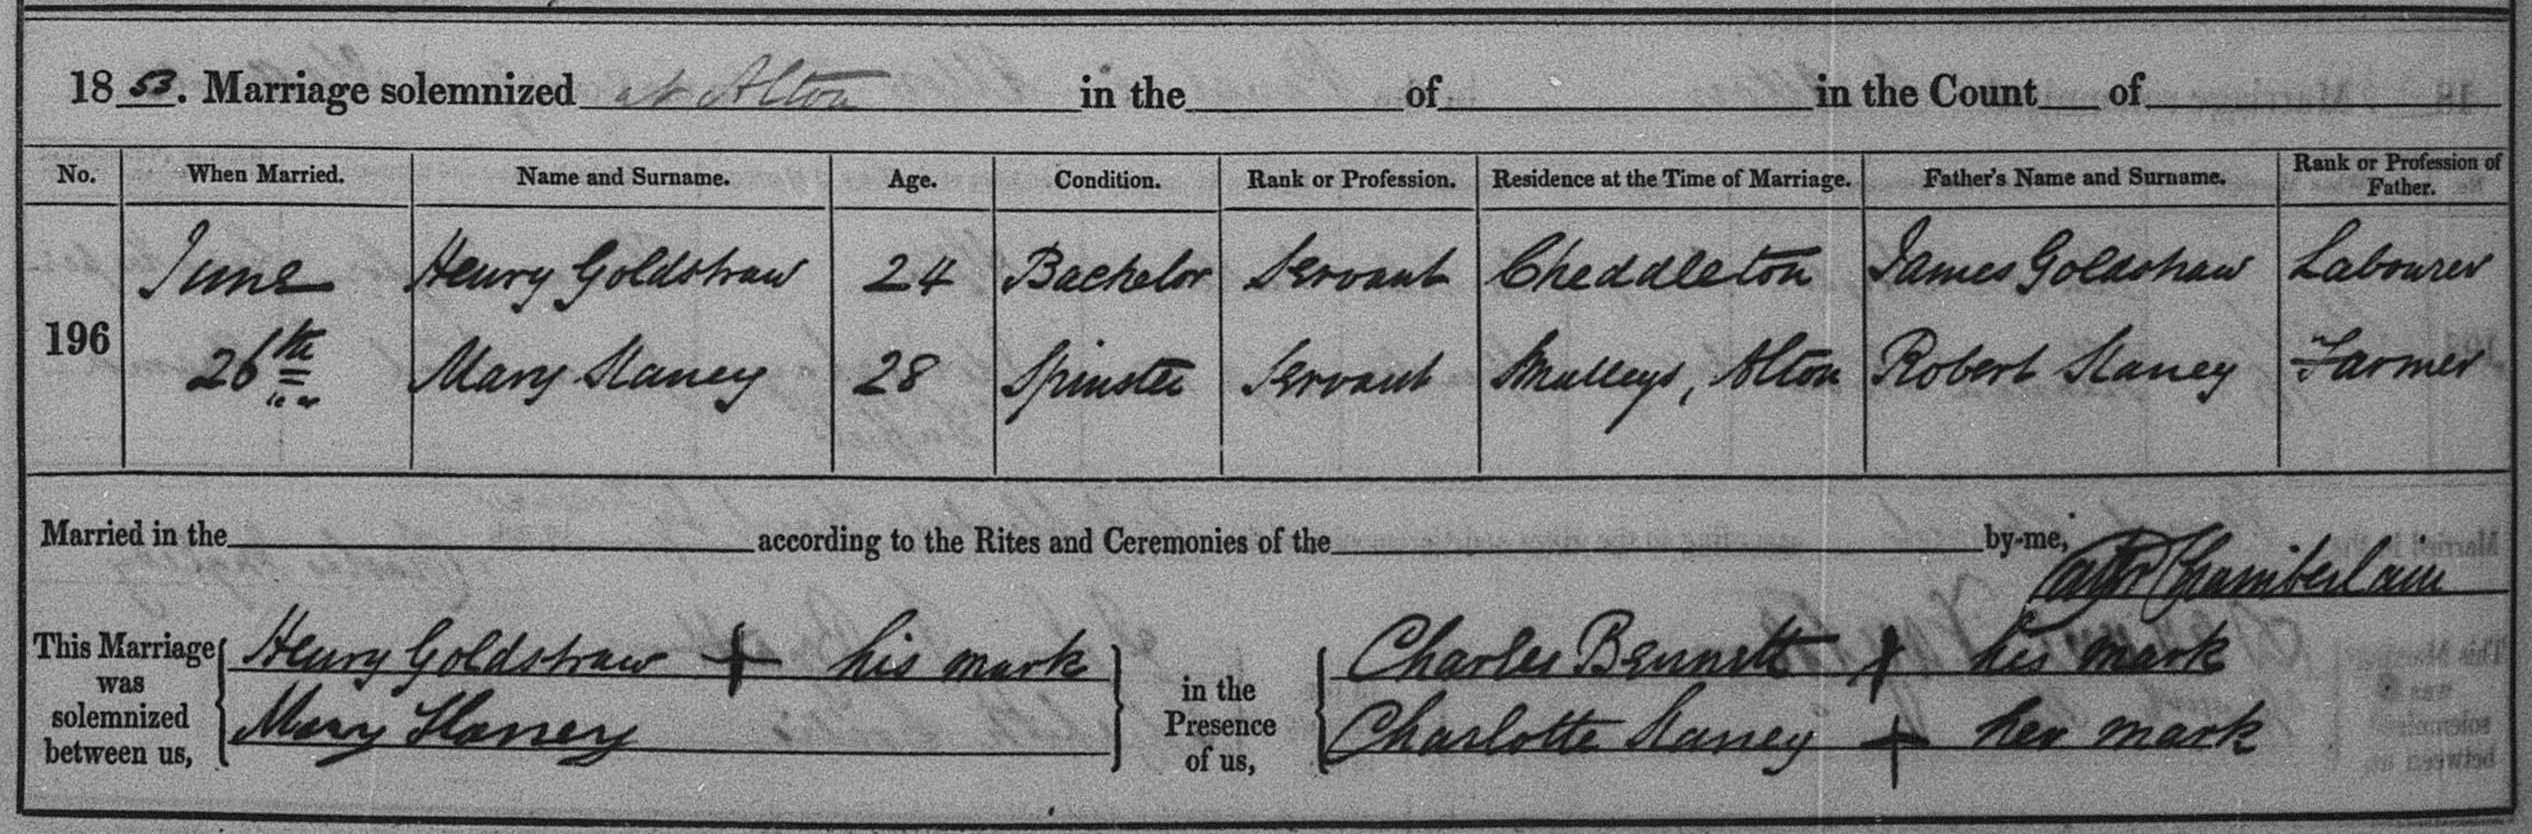 1853. Marriage solemnized at Alton in the of in the Count of
No. When Married. Name and Surname. Age. Condition. Rank or Profession. Residence at the Time of Marriage. Father's Name and Surname. Rank or Profession of Father.
196
June Henry Goldstraw 24 Bachelor Servant Cheddleton James Goldstraw Labourer
26th Mary Staney 28 Spinster Servant Smalleys, Alton Robert Staney Farmer
Married in the according to the Rites and Ceremonies of the by me, Chamberlain
This Marriage was solemnized between us, Henry Goldstraw + his mark in the Presence of us, Charles Bennett + his mark
Mary Staney Charlotte Staney + her mark